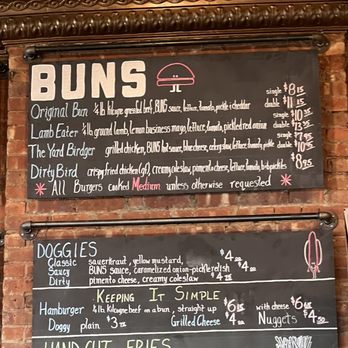 BUNS
Original Bun 1/4 lb. kilcoyne grassfed beef, BUNS sauce, lettuce, tomato, pickle & cheddar single $8.15 double $11.15
Lamb Eater 1/4 lb ground lamb, lemon business mayo, lettuce, tomato, pickled red onion single $10.35 double $13.35
The Yard Birdger grilled chicken, BUNS hot sauce, blue cheese, celery slaw, lettuce, tomato, pickle single $7.95 double $10.95
Dirty Bird crispy fried chicken (gf), creamy coleslaw, pimento cheese, lettuce, tomato, pickles $8.95
All Burgers cooked Medium unless otherwise requested
DOGGIES
Classic sauerkraut, yellow mustard, $4
Saucy BUNS sauce, caramelized onion-pickle relish $4
Dirty pimento cheese, creamy coleslaw $4
KEEPING IT SIMPLE
Hamburger 1/4 lb. Kilcoyne beef on a bun, straight up $6 with cheese $6
Doggy plain $3 Grilled Cheese $4 Nuggets $4
HAND CUT FRIES